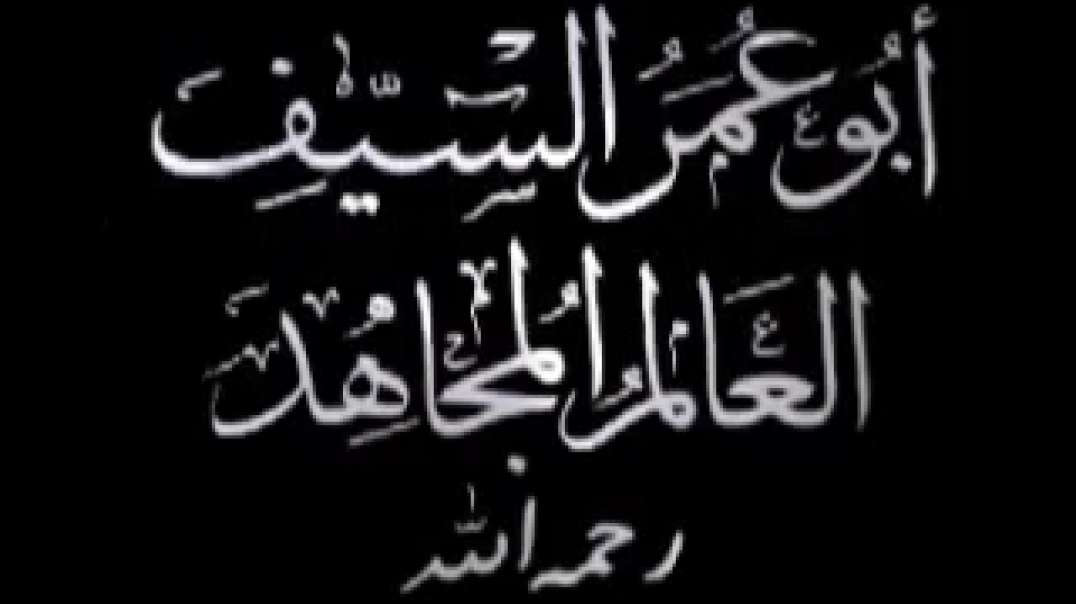 أَبُو عُمَرُ السِّيَفِ
العَالِمُ المُجَاهِدَ
رحمه الله